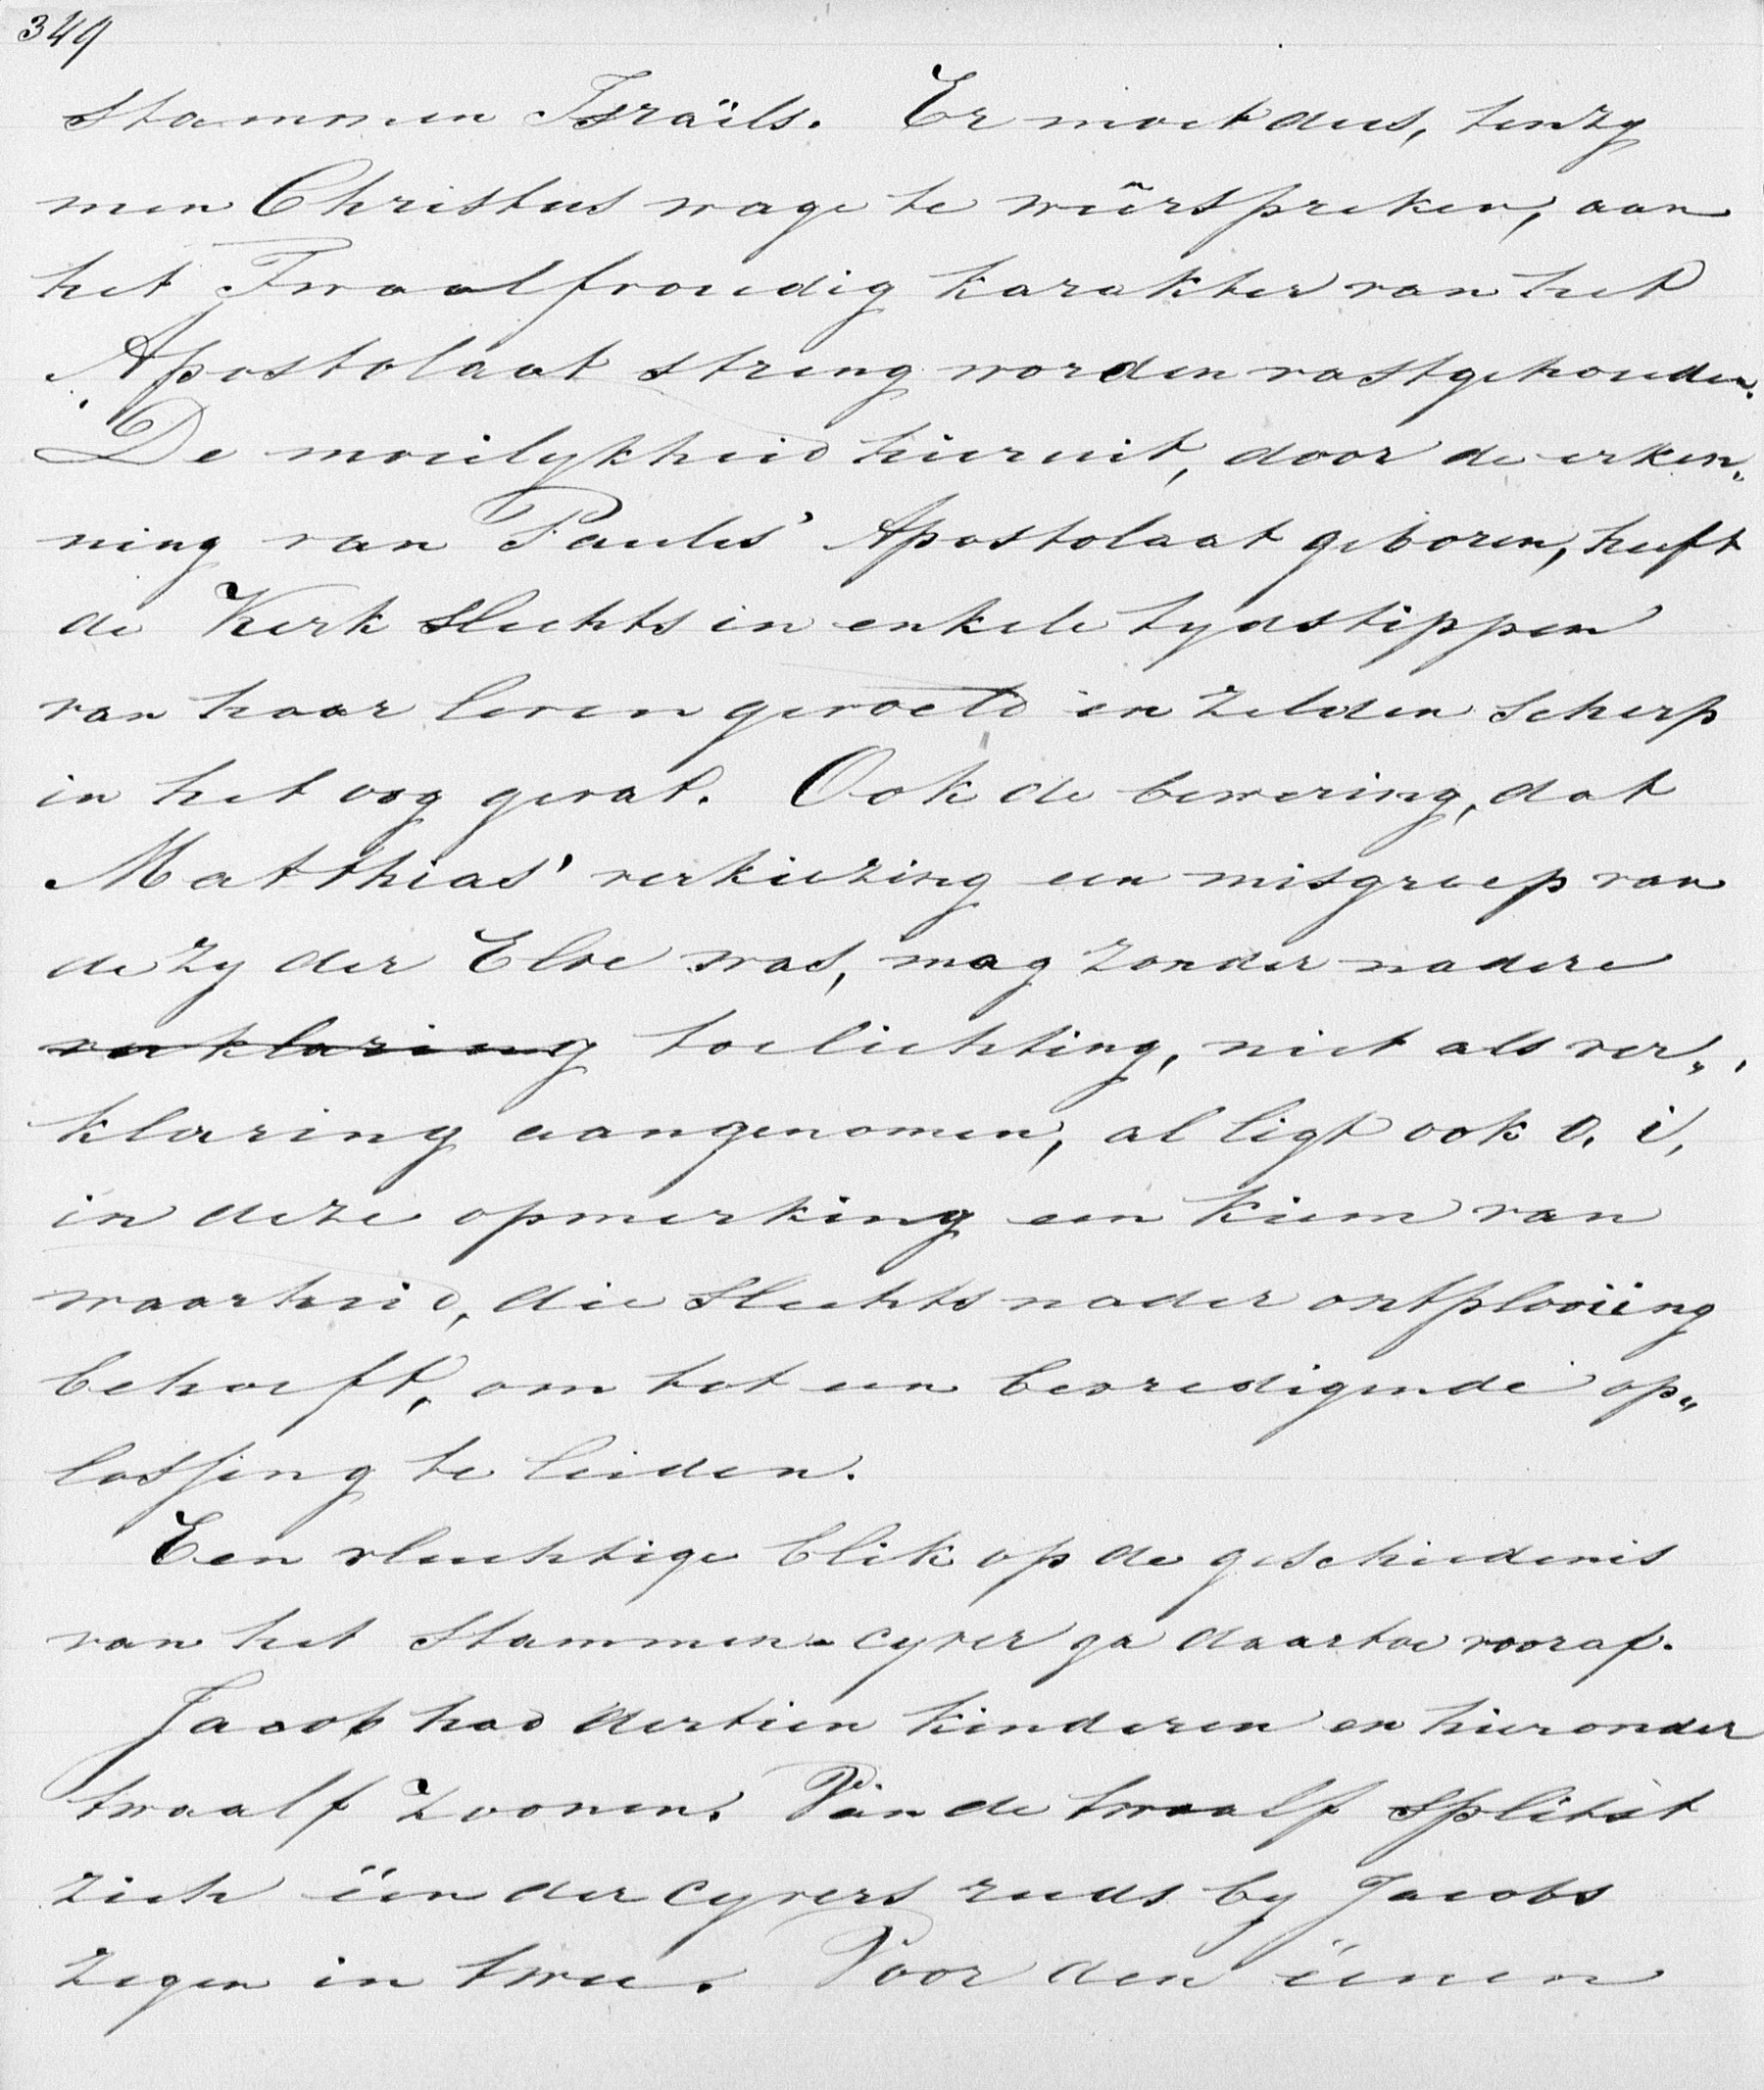 349
stammen Israëls. Er moet dus, tenzy
men Christus wage te weêrspreken, aan
het Twaalfvoudig karakter van het
Apostolaat streng worden vastgehouden.
De moeilykheid hieruit, door de erken„
ning van Paulus' Apostolaat geboren, heeft
de Kerk slechts in enkele tydstippen
van haar leven gevoeld en zelden scherp
in het oog gevat. Ook de bewering, dat
Matthias' verkiezing een misgreep van
de zy der Elve was, mag zonder nadere
verklaring toelichting, niet als ver„
klaring aangenomen, al ligt ook o. i,
in deze opmerking een kiem van
waarheid, die slechts nader ontplooiïng
behoeft, om tot een bevredigende op„
lossing te leiden.
Een vluchtige blik op de geschiedenis
van het stammen-cyver ga daartoe vooraf.
Jacob had dertien kinderen en hieronder
twaalf zoonen. Van de twaalf splitst
zich één der cyvers reeds by Jacobs
zegen in twee. Voor den éénen